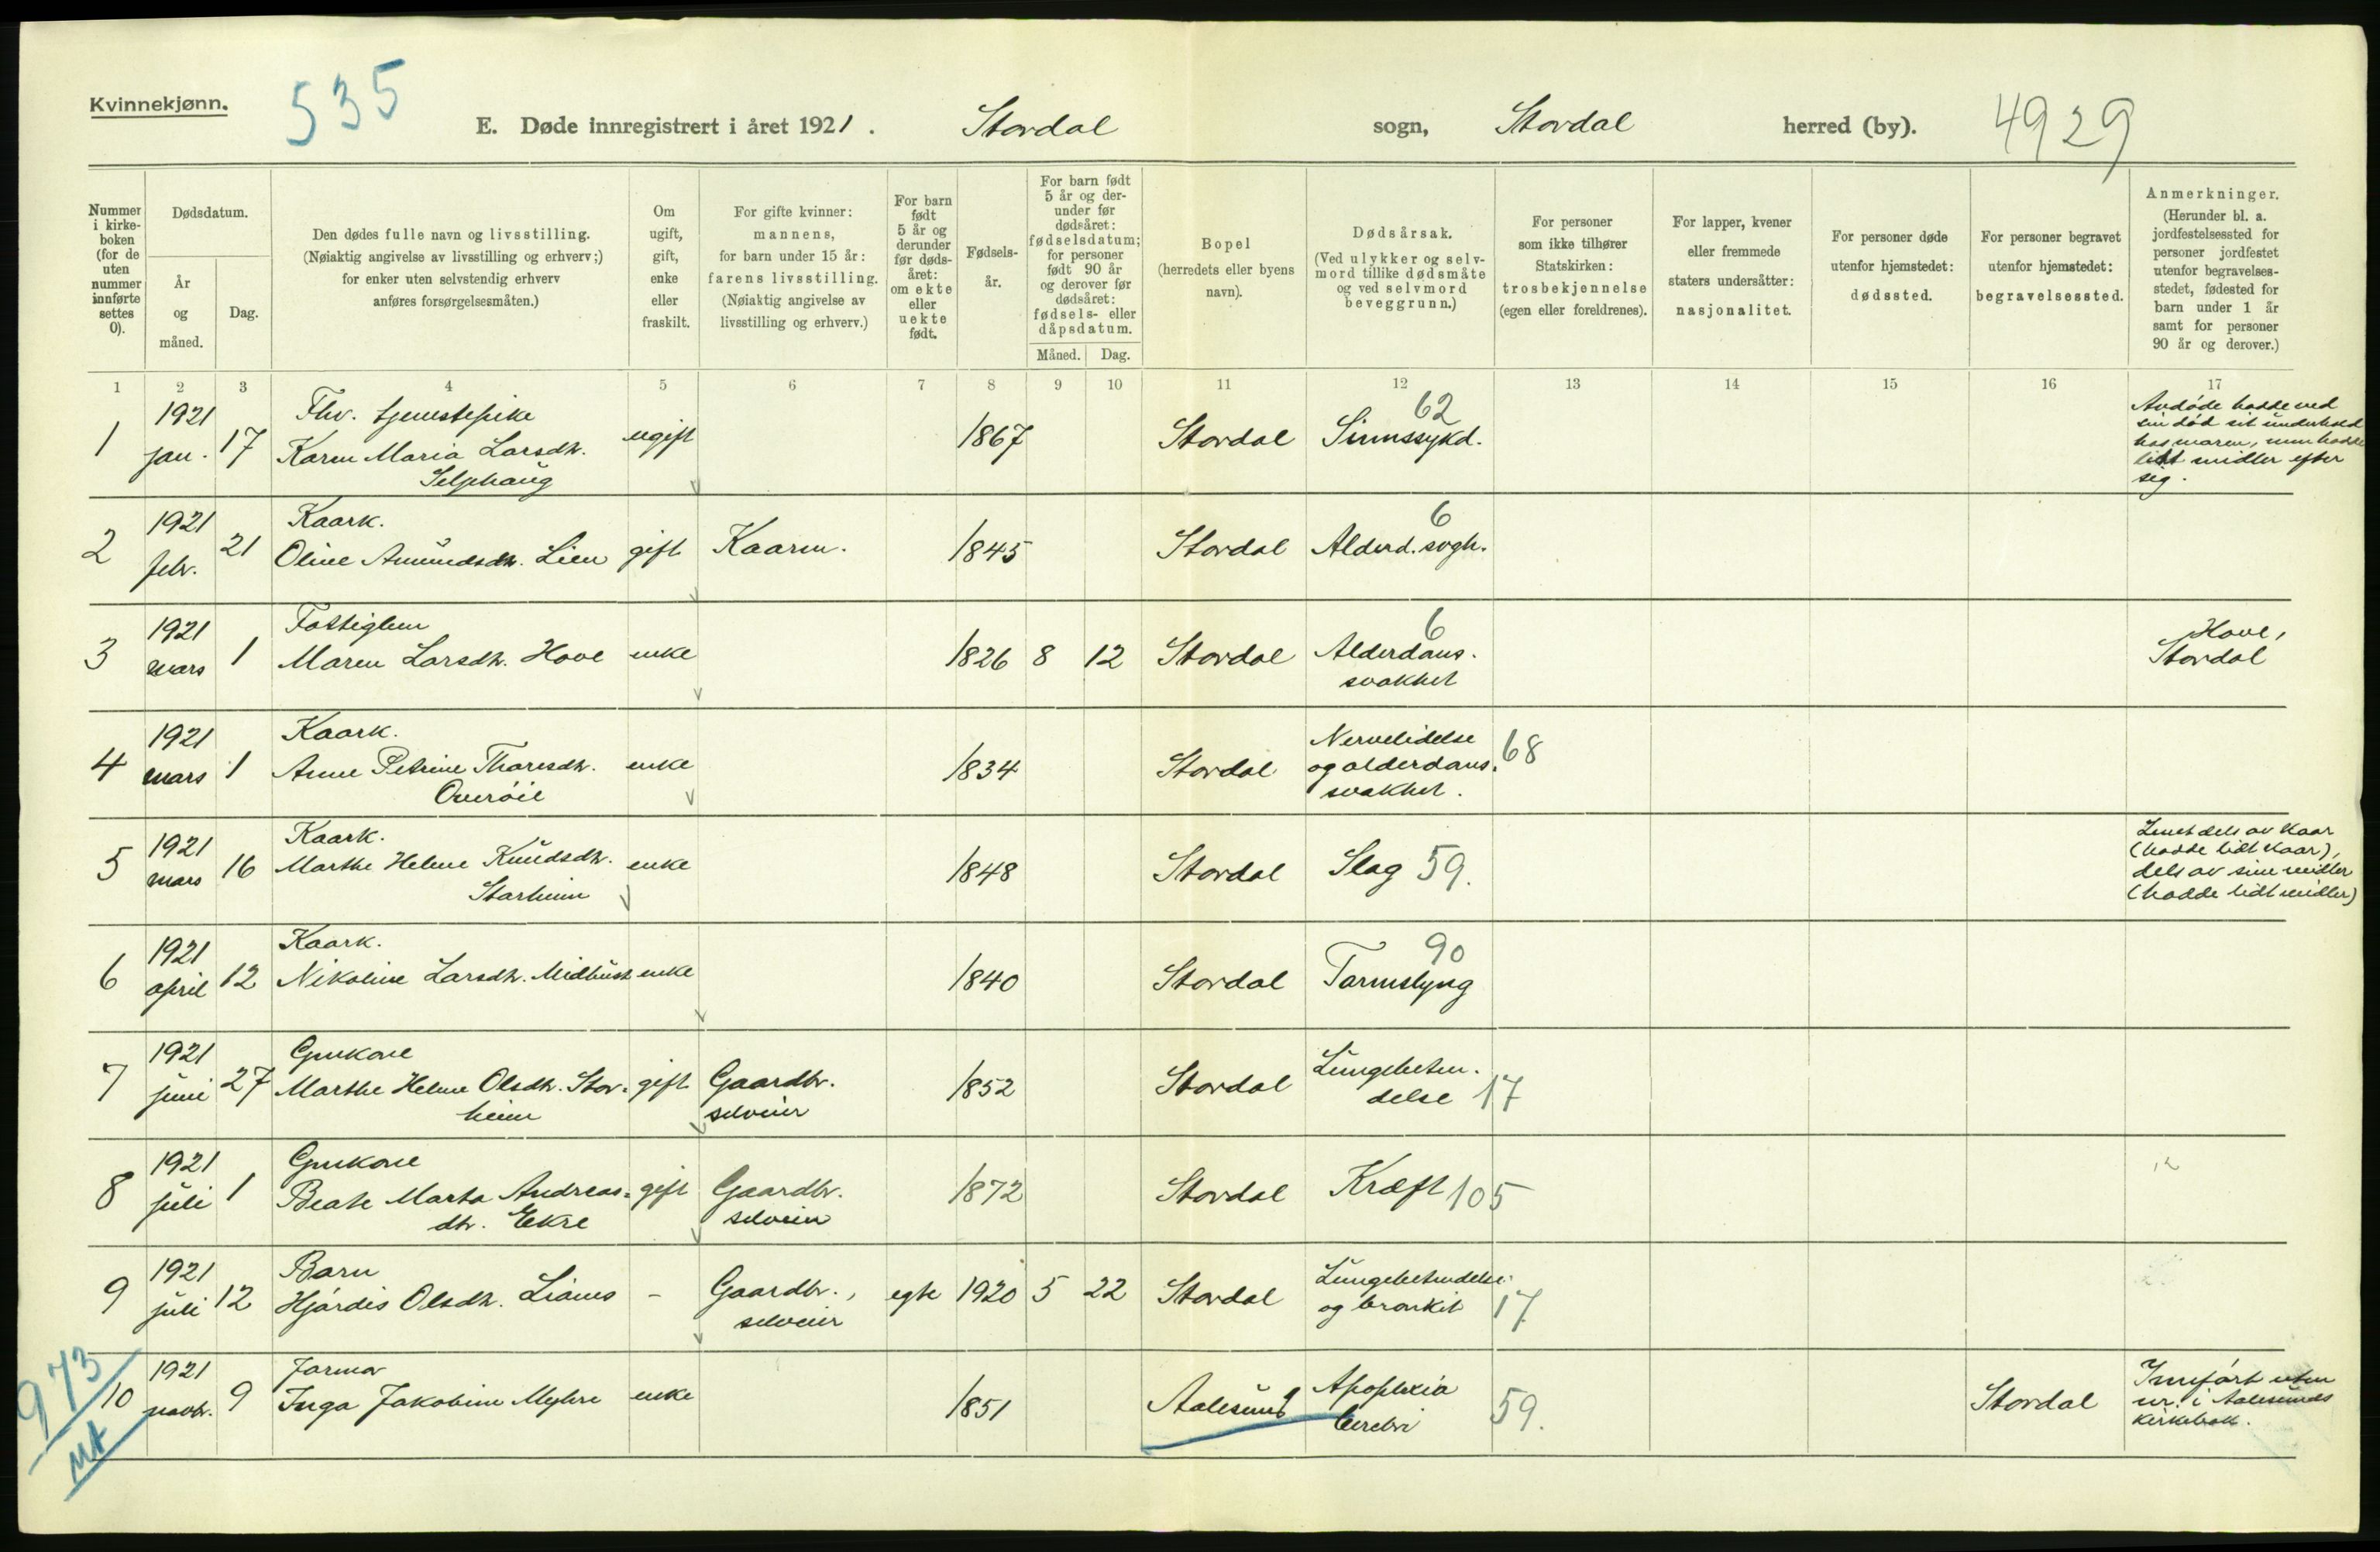 Kvinnekjønn.
535
E. Døde innregistrert i året 1921. Stordal sogn, Stordal herred (by). 4929
Nummer i kirkeboken (for de uten nummer innførte settes 0).
Dødsdatum.
År og måned.
Dag.
Den dødes fulle navn og livsstilling.
(Nøiaktig angivelse av livsstilling og erhverv;)
for enker uten selvstendig erhverv
anføres forsørgelsesmåten.)
Om
ugift,
gift,
enke
eller
fraskilt.
For gifte kvinner:
mannens,
for barn under 15 år:
farens livsstilling.
(Nøiaktig angivelse av
livsstilling og erhverv.)
For barn
født
5 år og
derunder
før døds-
året:
om ekte
eller
uekte
født.
Fødsels-
år.
For barn født
5 år og der-
under før
dødsåret:
fødselsdatum;
for personer
født 90 år
og derover før
dødsåret:
fødsels- eller
dåpsdatum.
Måned. Dag.
Bopel
(herredets eller byens
navn).
Dødsårsak.
(Ved ulykker og selv-
mord tillike dødsmåte
og ved selvmord
beveggrunn.)
For personer
som ikke tilhører
Statskirken:
trosbekjennelse
(egen eller foreldrenes).
For lapper, kvener
eller fremmede
staters undersåtter:
nasjonalitet.
For personer døde
utenfor hjemstedet:
dødssted.
For personer begravet
utenfor hjemstedet:
begravelsessted.
Anmerkninger.
(Herunder bl. a.
jordfestelsessted for
personer jordfestet
utenfor begravelses-
stedet, fødested for
barn under 1 år
samt for personer
90 år og derover.)
1 2 3 4 5 6 7 8 9 10 11 12 13 14 15 16 17
1 1921 jan. 17
Fhv. tjenestepike
Karen Maria Larsdtr.
ugift 1867 Stordal 62 Sinnssykd.
Avdøde hadde ved
sin død sit underhold
lidt midler efter
sig.
2 1921 febr. 21
Kaark.
Oline Amundsdtr. Lien
gift Kaarm. 1845 Stordal 6 Alderd. svgh.
3 1921 mars 1
Fattiglem
Maren Larsdtr. Hove
enke 1826 8 12 Stordal 6 Alderdoms-
svakhet
Hove,
Stordal
4 1921 mars 1
Kaark.
Anne Petrine Tharesdtr.
Overøie
enke 1834 Stordal
Nervelidelse
og alderdoms-
svakhet. 68
5 1921 mars 16
Kaark.
Marthe Helene Knudsdtr.
Storheim
enke 1848 Stordal Slag 59.
dels av kaar
(hadde lidt kaar),
dels av sine midler
(hadde lidt midler)
6 1921 april 12
Kaark.
Nikoline Larsdtr. Midhust
enke 1840 Stordal 90 Tarmslyng
7 1921 juni 27
Gmkone
Marthe Helene Olsdtr. Stor-
heim
gift Gaardbr.
selveier
1852 Stordal
Lungebeten-
delse 17
8 1921 juli 1
Gmkone
Beate Marta Andreas-
dtr. Ekre
gift Gaardbr.
selveier
1872 Stordal Kræft 105
9 1921 juli 12
Barn
Hjørdis Olsdtr. Lianes
- Gaardbr.,
selveier
egte 1920 5 22 Stordal
Lungebetendelse
og bronkit 17
973
10 1921 novbr. 9
Jormor
Inga Jakobine Myhre
enke 1851 Aalesund
Apoplexia
cerebri 59.
Stordal
Innført uten
nr. i Aalesunds
kirkebok.